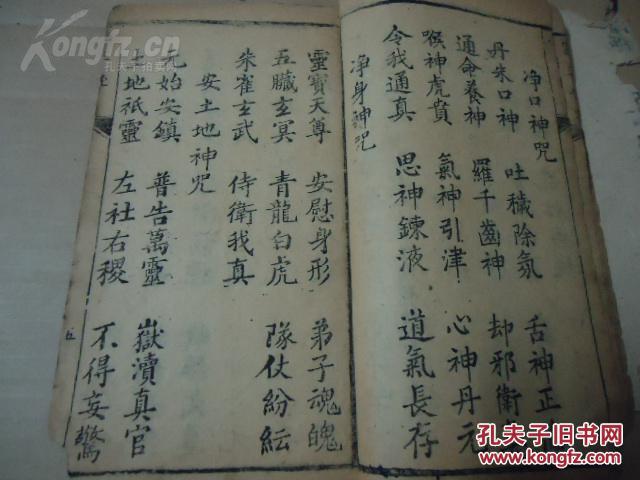 净口神咒
丹朱口神 吐穢除氛 舌神正
通命養神 羅千齒神 却邪衛
喉神虎賁 氣神引津 心神丹元
令我通真 思神鍊液 道氣長存
净身神咒
靈寶天尊 安慰身形 弟子魂魄
五臟玄冥 青龍白虎 隊仗紛紜
朱雀玄武 侍衛我真
安土地神咒
元始安鎮 普告萬靈 嶽瀆真官
地祇靈 左社右稷 不得妄驚
五
Kongfz.com
孔夫子拍卖网
孔夫子旧书网
KONGFZ.COM